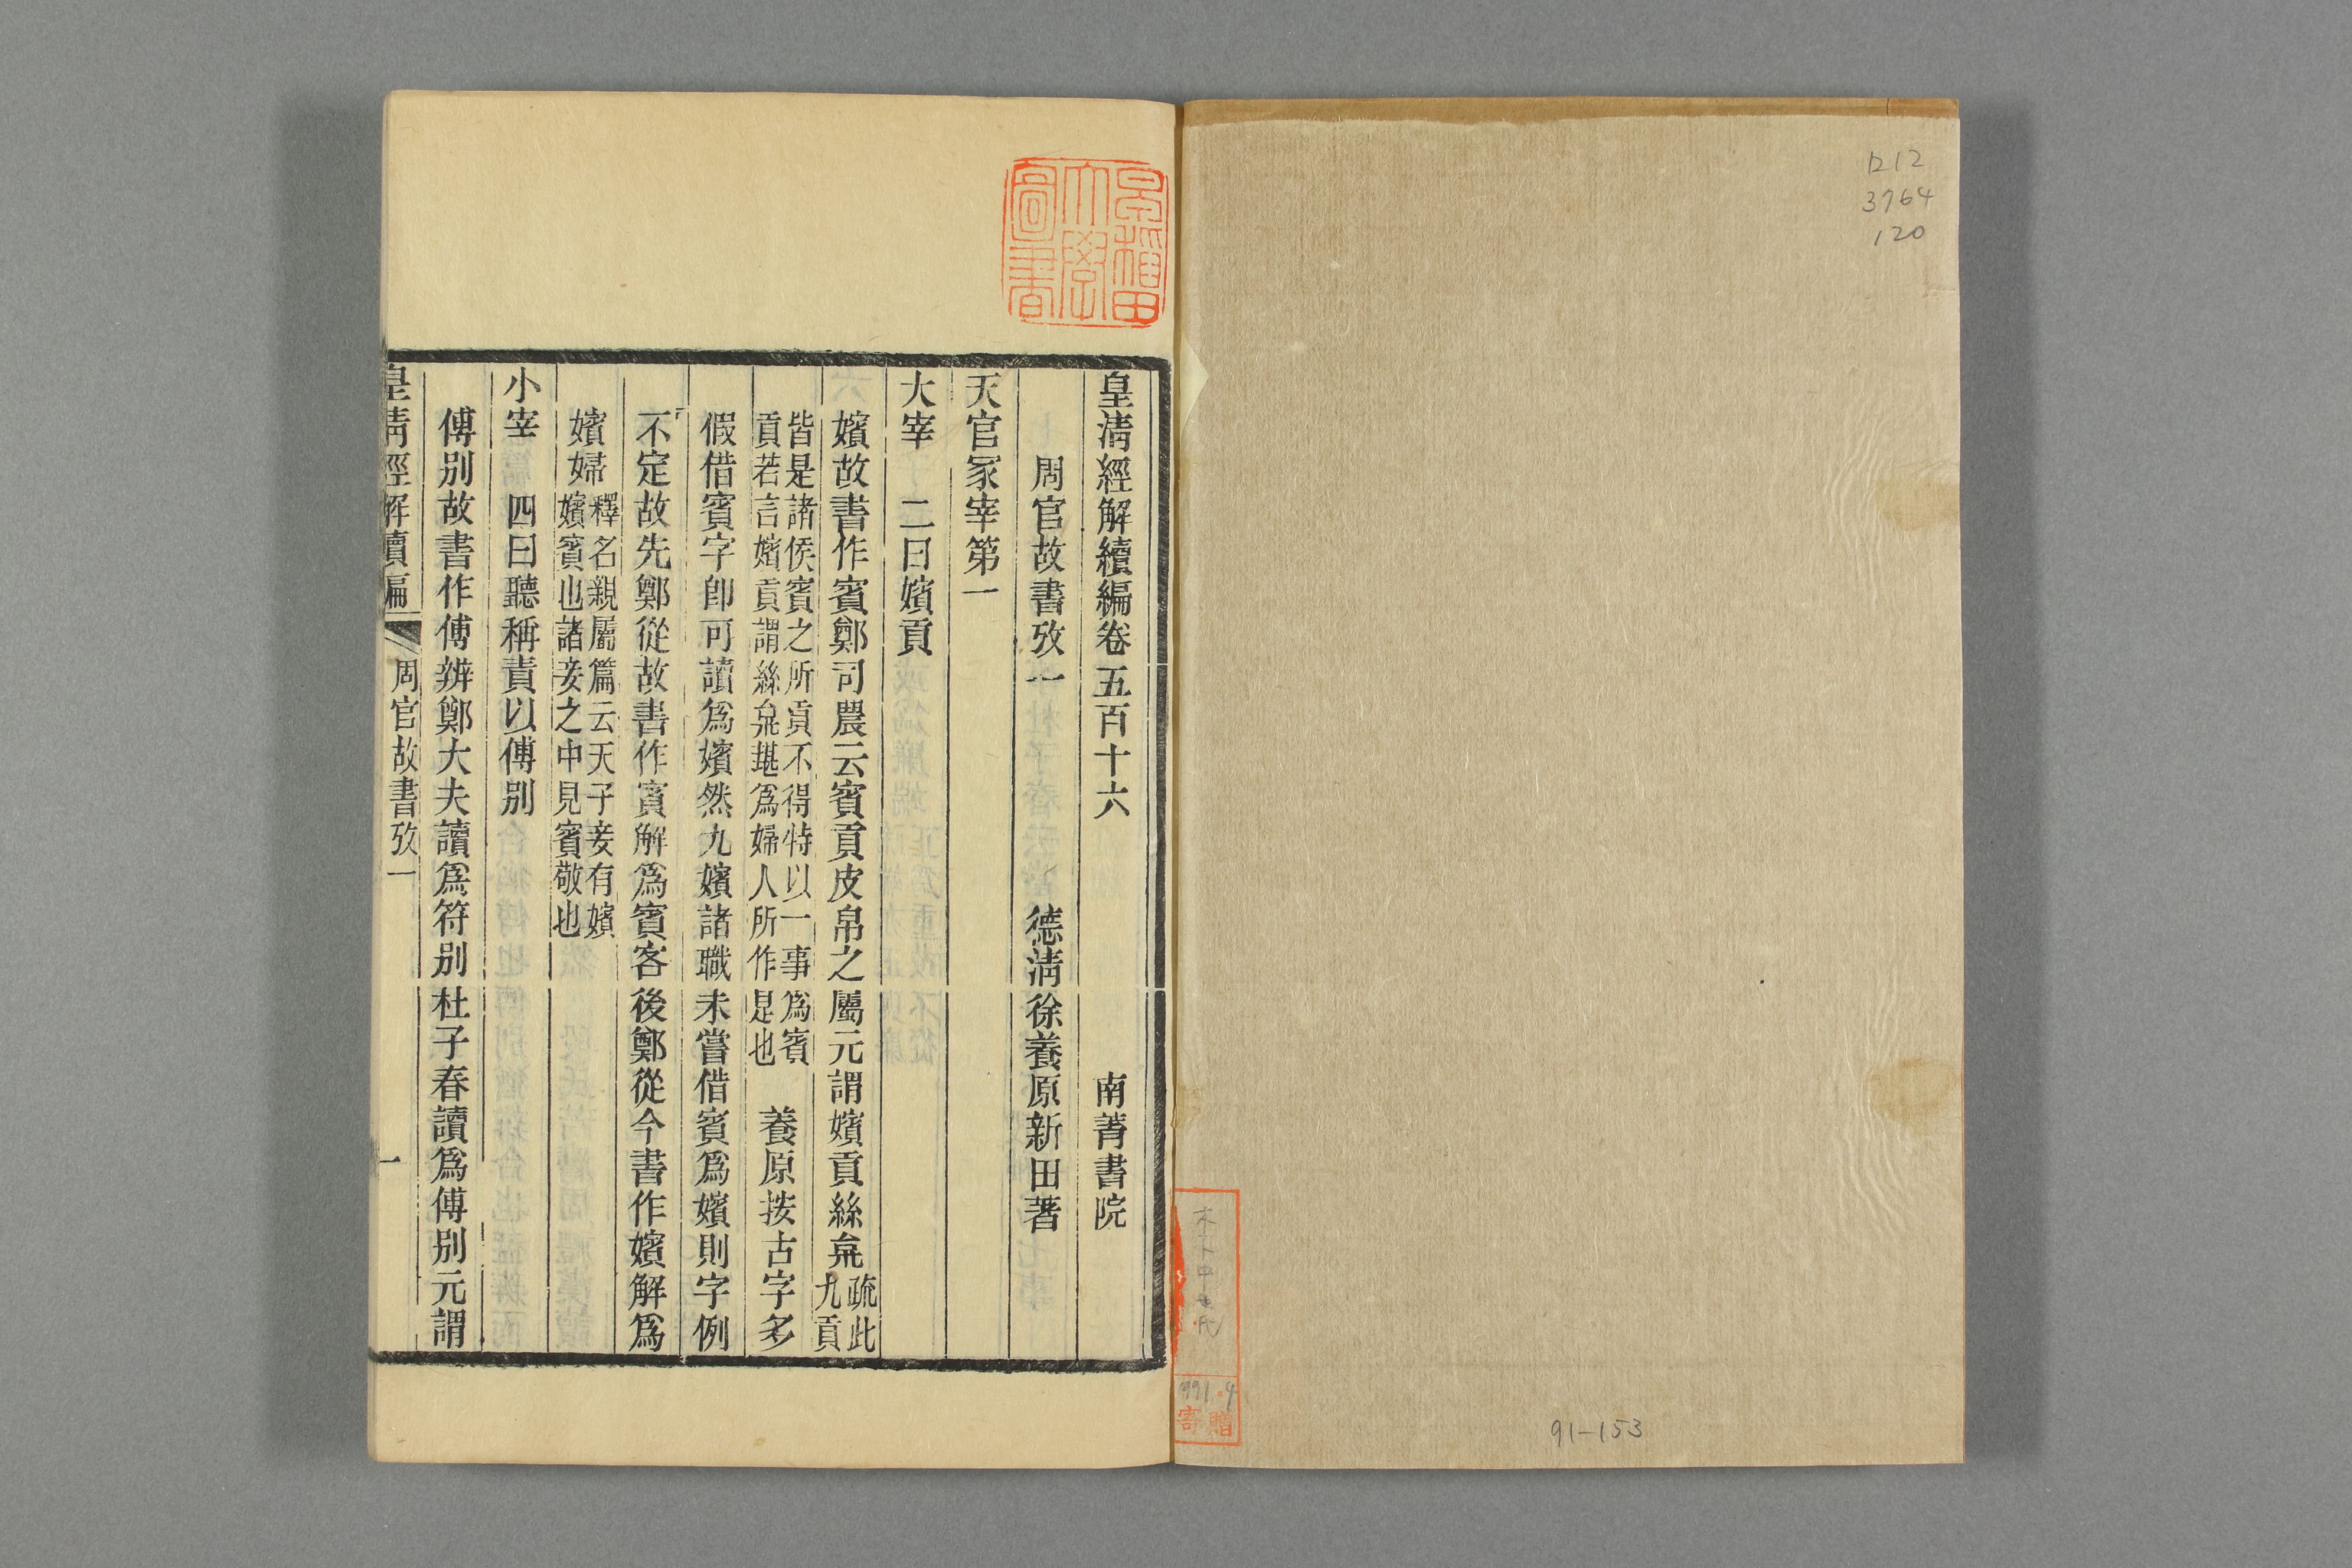 ロ12
3764
120
91-153
寄贈
早稲田
大學
圖書
皇清經解續編卷五百十六 南菁書院
周官故書攷一 德清徐養原新田著
天官冢宰第一
大宰 二曰嬪貢
嬪故書作賓鄭司農云賓貢皮帛之屬元謂嬪貢絲枲疏此九貢
皆是諸侯賓之所貢不得特以一事爲賓
貢若言嬪貢謂絲枲堪爲婦人所作是也
養原按古字多
假借賓字卽可讀爲嬪然九嬪諸職未嘗借賓爲嬪則字例
不定故先鄭從故書作賓解爲賓客後鄭從今書作嬪解爲
嬪婦
釋名親屬篇云天子妾有嬪
嬪賓也諸妾之中見賓敬也
小宰 四曰聽稱責以傅别
傅别故書作傅辨鄭大夫讀爲符别杜子春讀爲傅别元謂
皇清經解續編 周官故書攷一 一